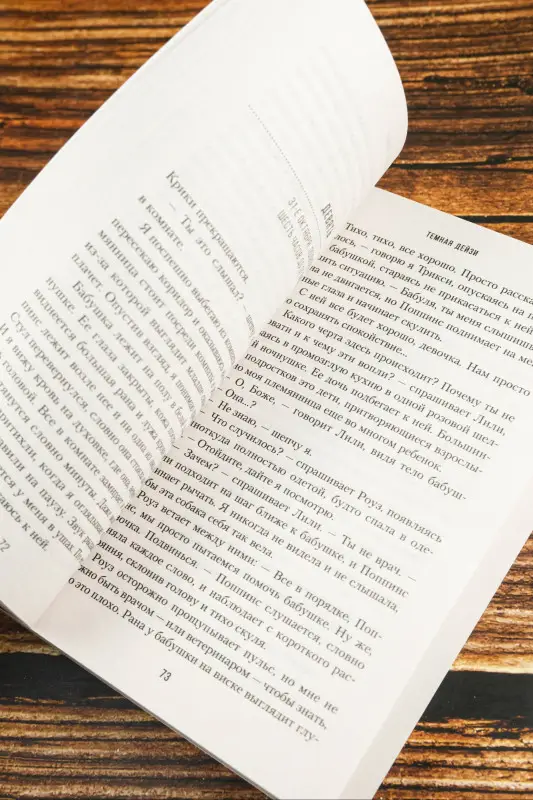 ДЕВЯ
31-Е ОКТЯБРЯ
ШЕСТЬ ЧАСОВ
Крики прекращаются.
— Ты это слышал?
в комнате.
Я поспешно выбегаю
пересекаю коридор и оказываюсь
мянница стоит посреди
из-за которой выглядит
плачет. Опустив взгляд, я
Бабушка лежит на полу в
пушке. Ее глаза закрыты, кожа
виднеется большая рана и
пинс лежит возле нее и ни одно из
Стул перевернулся, словно она
И я вижу кровь на духовке, где она
головой. Все в комнате
словно минуты. Даже
кухни, когда я оглядываюсь
на паузу. Звук
у меня в ушах.
к ней.
72
ТЕМНАЯ ДЕЙЗИ
Тихо, тихо, все хорошо. Просто
— говорю я Трикси, опускаясь на
бабушкой, стараясь не прикасаться к ней
ситуацию. — Бабуля, ты меня слышишь
не двигается, но Поппинс поднимает на
глаза и начинает скулить.
С ней все будет хорошо, девочка. Нам просто
сохранять спокойствие...
Какого черта здесь происходит? Почему ты не
и к чему эти вопли? — спрашивает Лили,
в промозглую кухню в одной розовой шел-
ночнушке. Ее дочь подбегает к ней. Большин-
подростков это дети, притворяющиеся взрослы-
моя племянница еще во многом ребенок.
О, Боже, — говорит Лили, видя тело бабуш-
Она..?
Не знаю, — шепчу я.
Что случилось? — спрашивает Роуз, появляясь
полностью одетой, будто спала в оде-
— Отойдите, дайте я посмотрю.
Зачем? — спрашивает Лили. — Ты не врач. —
подходит на шаг ближе к бабушке, и Поппинс
рычать. Я никогда не видела и не слышала,
эта собака себя так вела.
Роуз встает между ними: — Все в порядке, Поп-
мы просто пытаемся помочь бабушке. Ну же,
Подвинься. — Поппинс слушается, словно
каждое слово, и наблюдает с короткого рас-
склонив голову и тихо скуля.
Роуз осторожно прощупывает пульс, но мне не
быть врачом — или ветеринаром — чтобы знать,
это плохо. Рана у бабушки на виске выглядит глу-
73